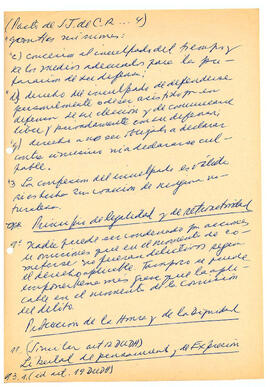 (Pacto de S.J. de C.R. ... 4)
garantías mínimas:
"c) concesión al inculpado del tiempo y
de los medios adecuados para la pre-
paración de su defensa;
"d) derecho del inculpado de defenderse
personalmente o de ser asistido por un
defensor de su elección y de comunicarse
libre y privadamente con su defensor;
"g) derecho a no ser obligado a declarar
contra sí mismo ni a declararse cul-
pable.
"3 La confesión del inculpado es válida
si es hecha sin coacción de ninguna na-
turaleza
Principio de legalidad y de retroactividad
9: Nadie puede ser condenado por acciones
u omisiones que en el momento de co-
meterse no fueran delictivos según
el derecho aplicable. Tampoco se puede
imponer pena más grave que la apli-
cable en el momento de la comisión
del delito.
Protección de la Honra y de la Dignidad
11. (Similar art 12 DUDH)
La libertad de pensamiento y de Expresión
13.1. (id art. 19 DUDH)